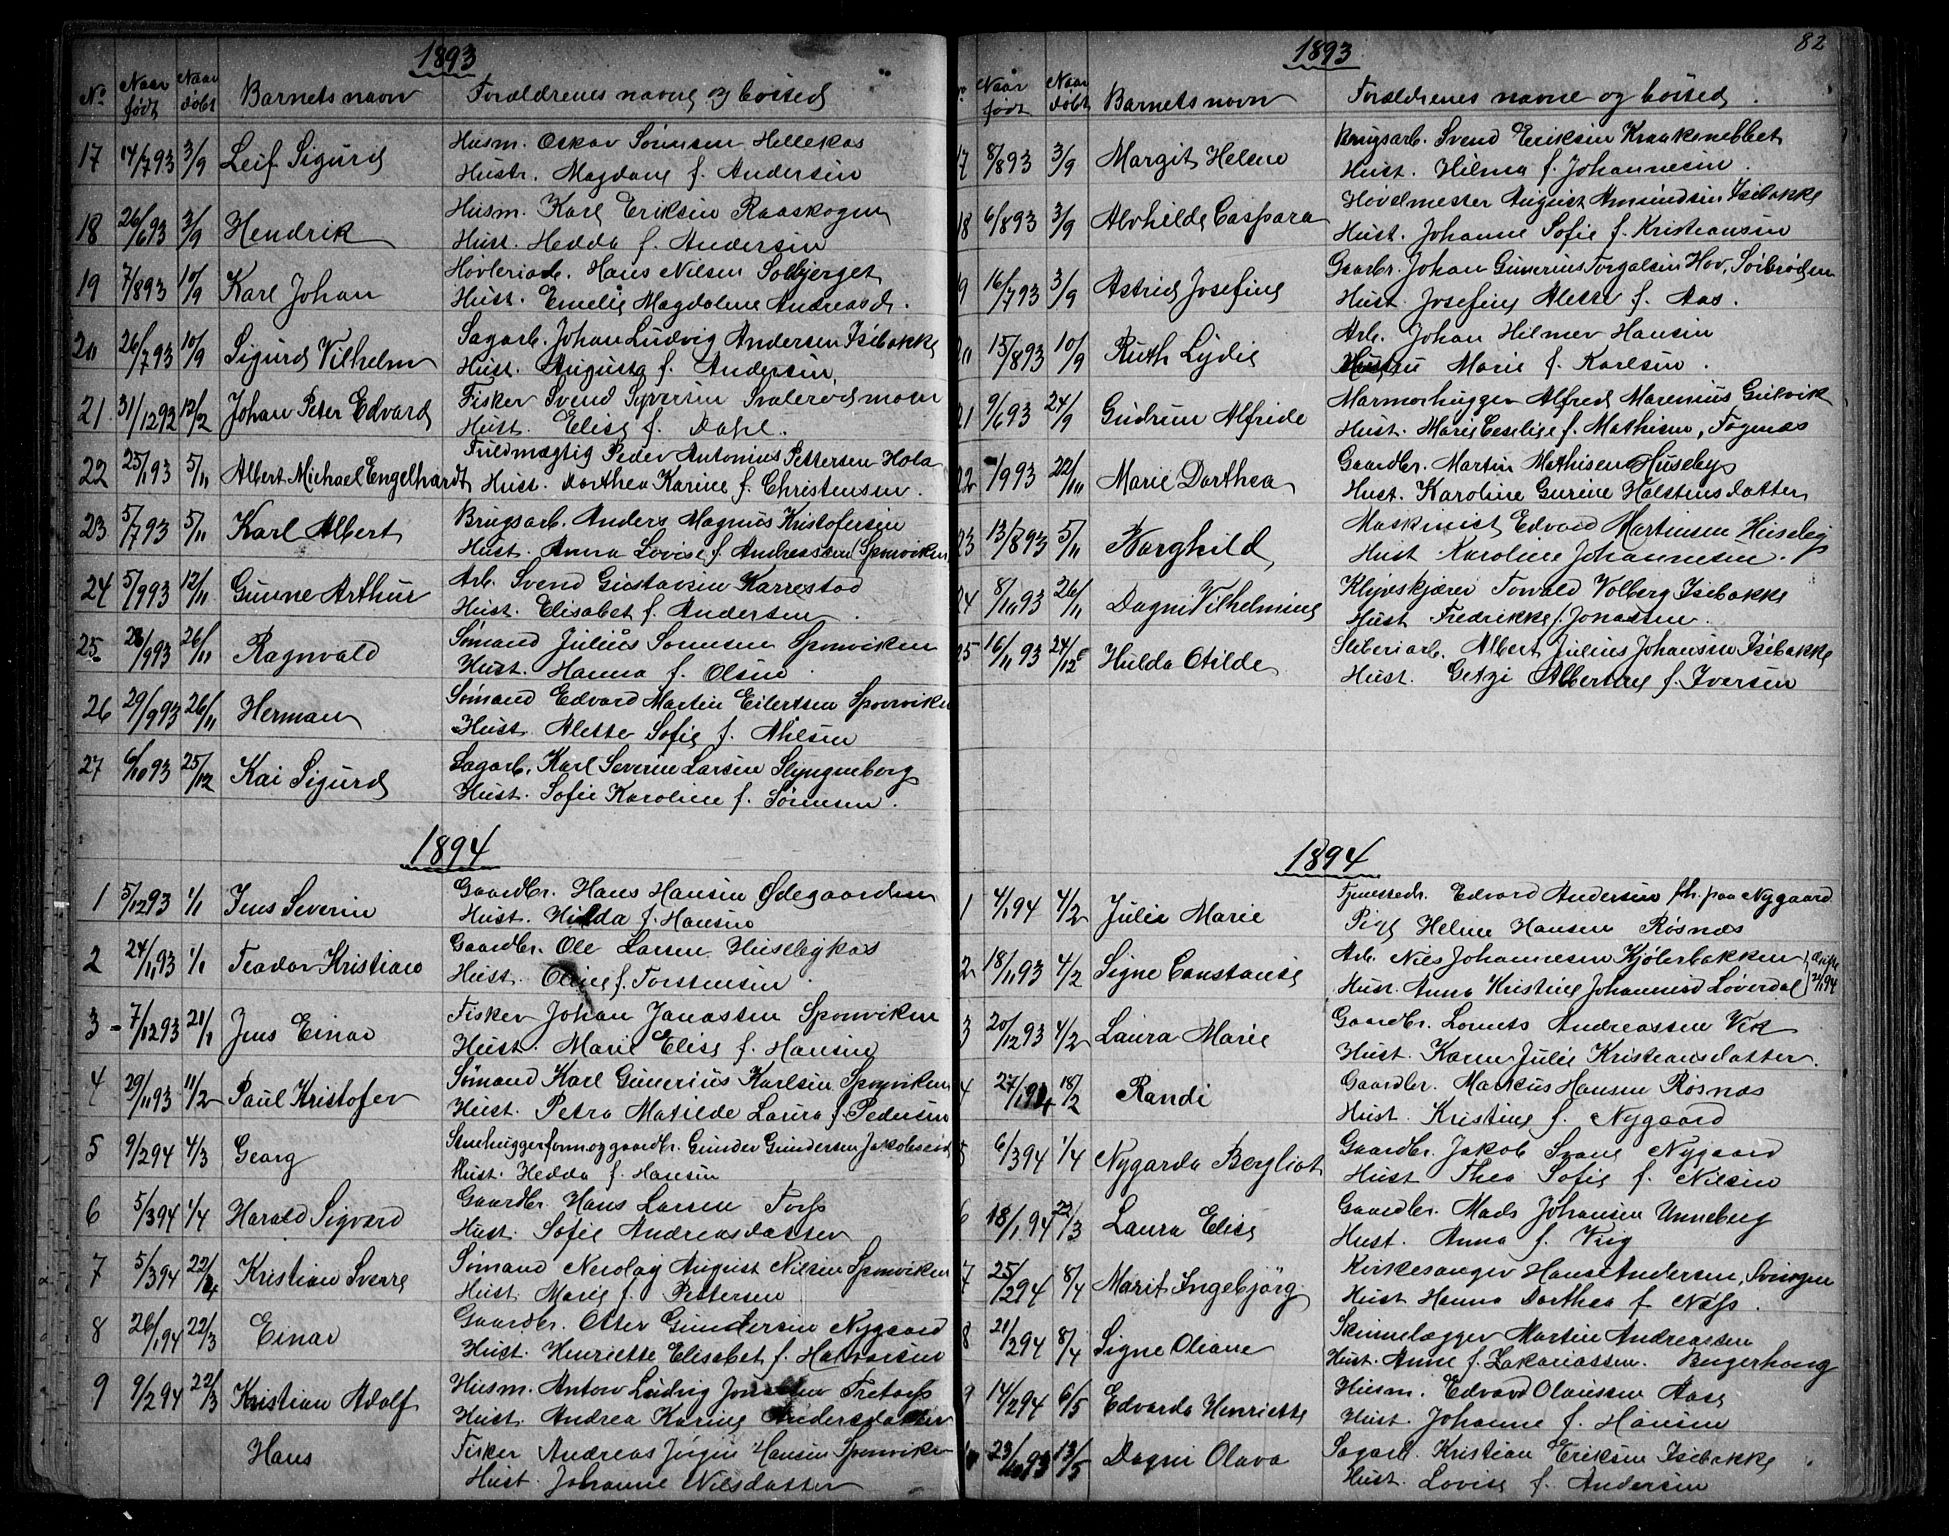 1893
No Naar født Naar døbt Barnets navn Forældrenes navne og bosted
17 14/7 93 3/9 Leif Sigurd Husm. Oskar Sørensen Hellekas
Hustr. Magdane f. Andersen
18 26/6 93 3/9 Hendrik Husm. Karl Eriksen Raaskogen
Hust. Hedda f. Andersen
19 7/8 93 10/9 Karl Johan Høvleriarb. Hans Nilsen Solbjerget
Hust. Emelie Magdalene Andreasd.
20 26/7 93 10/9 Sigurd Vilhelm Sagarb. Johan Ludvig Andersen Isebakke
Hust. Augusta f. Andersen
21 31/12 92 12/2 Johan Peter Edvard Fisker Svend Syversen Svalerødmoen
Hust. Elise f. Dahl.
22 25/1 93 5/11 Albert Michael Engelhardt Fuldmægtig Peder Antonius Pettersen Hola
Hust. Dorthea Karine f. Christensen.
23 5/7 93 5/11 Karl Albert Brugsarb. Anders Magnus Kristofersen
Hust. Anna Lovise f. Andreassen Sponviken
24 5/9 93 12/11 Gunne Arthur Arb. Svend Gustavsen Karrestad
Hust. Elisabet f. Andersen.
25 /9 93 26/11 Ragnvald Sømand Julius Sørensen Sponviken
Hust. Hanna f. Olsen
26 29/9 93 26/11 Herman Sømand Edvard Martin Eilertsen Sponviken
Hust. Alette Sofie f. Ahlsen
27 6/10 93 25/12 Kai Sigurd Sagarb. Karl Severin Larsen Slyngenberg
Hust. Sofie Karoline f. Sørensen.
1894
1 5/12 93 1/1 Jens Severin Gaardbr. Hans Hansen Ødegaarden
Hust. Hilda f. Hansen
2 24/11 93 1/1 Teodor Kristian Gaardbr. Ole Larsen Husebykas
Hust. Oline f. Torstensen.
3 7/12 93 21/1 Jens Einar Fisker Johan Janassen Sponviken
Hust. Marie Elise f. Hansen
4 29/11 93 11/2 Paul Kristofer Sømand Karl Gunerius Karlsen Sponviken
Hust. Petra Matilde Laura f. Pedersen
5 9/2 94 4/3 Georg Stenhuggerform og gaardbr. Gunder Gundersen Jakobseie
Hust. Hedda f. Hansen
6 5/3 94 1/4 Harald Sigvard Gaardbr. Hans Larsen Torps
Hust. Sofie Andreasdatter
7 5/3 94 22/4 Kristian Sverre Sømand Nicolay August Nilsen Sponviken
Hust. Marie f. Pettersen
8 26/1 94 22/3 Einar Gaardbr. Otter Gundersen Nygaard
Hust. Henriette Elisabet f. Halvorsen
9 9/2 94 22/3 Kristian Adolf Husm. Anton Ludvig Tretorps
Hust. Andrea Karine Andersdatter
Hans Fisker Andreas Jørgen Hansen Sponviken
Hust. Johanne Nilsdatter
82
1893
No Naar født Naar døbt Barnets navn Forældrenes navne og bosted.
17 8/8 93 3/9 Margit Helene Brugsarb. Svend Eriksen Kraaksnebbet
Hust. Hilma f. Johannesen.
18 6/8 93 3/9 Alvhilde Caspara Høvelmester August Amundsen Isebakke
Hust. Johanne Sofie f. Kristiansen
19 16/7 93 3/9 Astrid Josefine Gaarbr. Johan Gunerius Torgalsen Hov,
Hust. Josefine Alette f. Aas.
20 15/8 93 10/9 Ruth Lydie Arb. Johan Hilmer Hansen
Hustru Marie f. Karlsen.
21 9/6 93 24/9 Gudrun Alfride Marmorhugger Alfred Marenius Gulvik
Hust. Marie Ceselige f. Mathisen, Fagenæs
22 /9 93 22/10 Marie Dorthea Gaardbr. Martin Mathisen Huseby
Hust. Karoline Gurine Halstensdatter
23 13/8 93 5/11 Borghild Maskinist Edvard Martinsen Huseby
Hust Karoline Johannesen.
24 8/10 93 26/11 Dagni Vilhelmine Klipskjærer Torvald Volberg Isebakke
Hust Fredrikke f. Jonassen.
25 16/11 93 24/12 Hulda Otilde Sliberiarb. Albert Julius Johansen Isebakke
Hust. Getzi Albertine f. Iversen
1894
1 4/1 94 4/2 Julie Marie Tjenestedr. Edvard Andersen fh. paa Nygaard
Pige Helene Hansen Røsnæs
2 18/11 93 4/2 Signe Constanse Arb. Nils Johannesen Kjølerbakken
Hust. Anna Kristine Johannesd Løverdal
3 20/12 93 4/2 Laura Marie Gaardbr. Lorents Andreassen Vik
Hust. Karen Julie Kristiansdatter.
4 27/1 94 18/2 Randi Gaardbr. Markus Hansen Røsnæs
Hust. Kristine f. Nygaard
5 6/3 94 1/4 Nygarda Bergliot Gaardbr. Jakob Svane Nygaard
Hust Thea Sofie f. Nilsen
6 18/1 94 22/3 Laura Elise Gaardbr. Mads Johansen Unneberg
Hust. Anna f. Viig
7 25/2 94 8/4 Marit Ingebjørg Kirkesanger Hans Andersen,
Hust Hanna Dorthea f. Næss.
8 21/2 94 8/4 Signe Oliane Skinnelægger Martin Andreassen
Hust. Anne f. Zakariassen. Bugerhaug
9 14/2 94 6/5 Edvarda Henriette Husm. Edvard Olaussen Aase
Hust. Johanne f. Hansen
23/10 93 13/5 Dagni Olava Sagarb. Kristian Eriksen Isebakke
Hust. Lovise f. Andersen